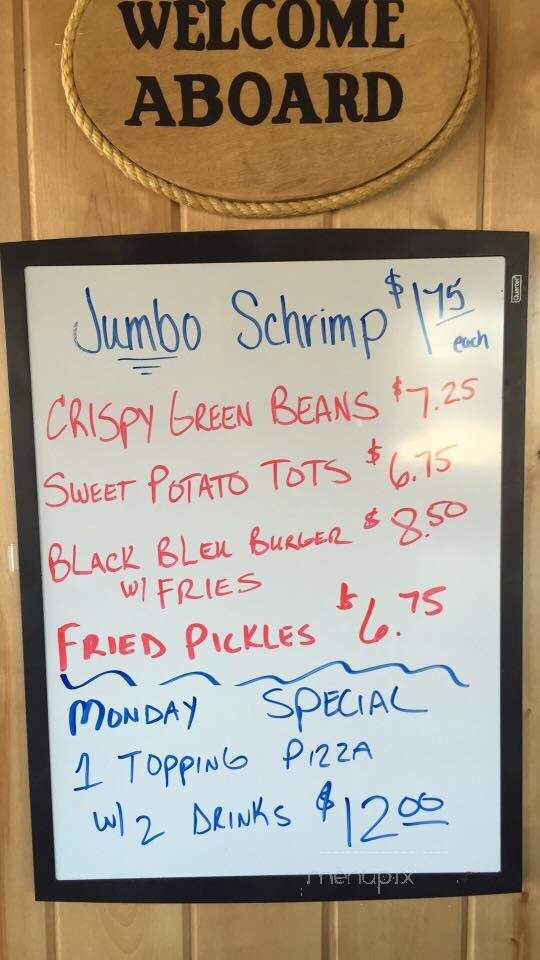 WELCOME
ABOARD
Quartet
Jumbo Schrimp $1.75 each
CRISPY GREEN BEANS $7.25
SWEET POTATO TOTS $6.75
BLACK BLEU BURGER $8.50
W/ FRIES
FRIED PICKLES $6.75
MONDAY SPECIAL
1 TOPPING PIZZA
W/ 2 DRINKS $12.00
menupix